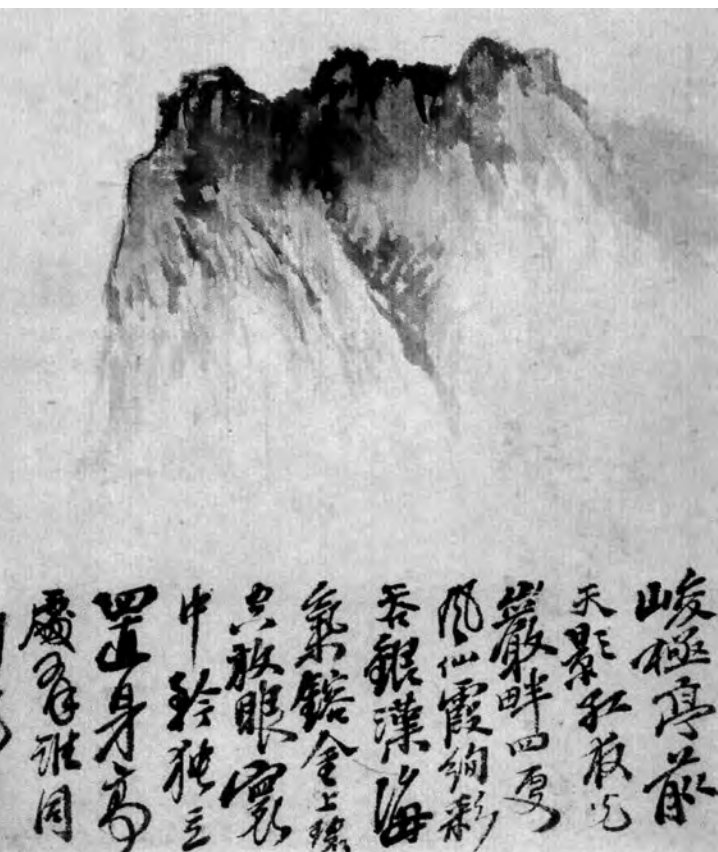 峻極亭前
天影紅夜光
巖畔四更
風仙霞絢彩
吞銀漢海
氣鎔金上碧
空放眼寰
中矜独立
置身高
處有誰同